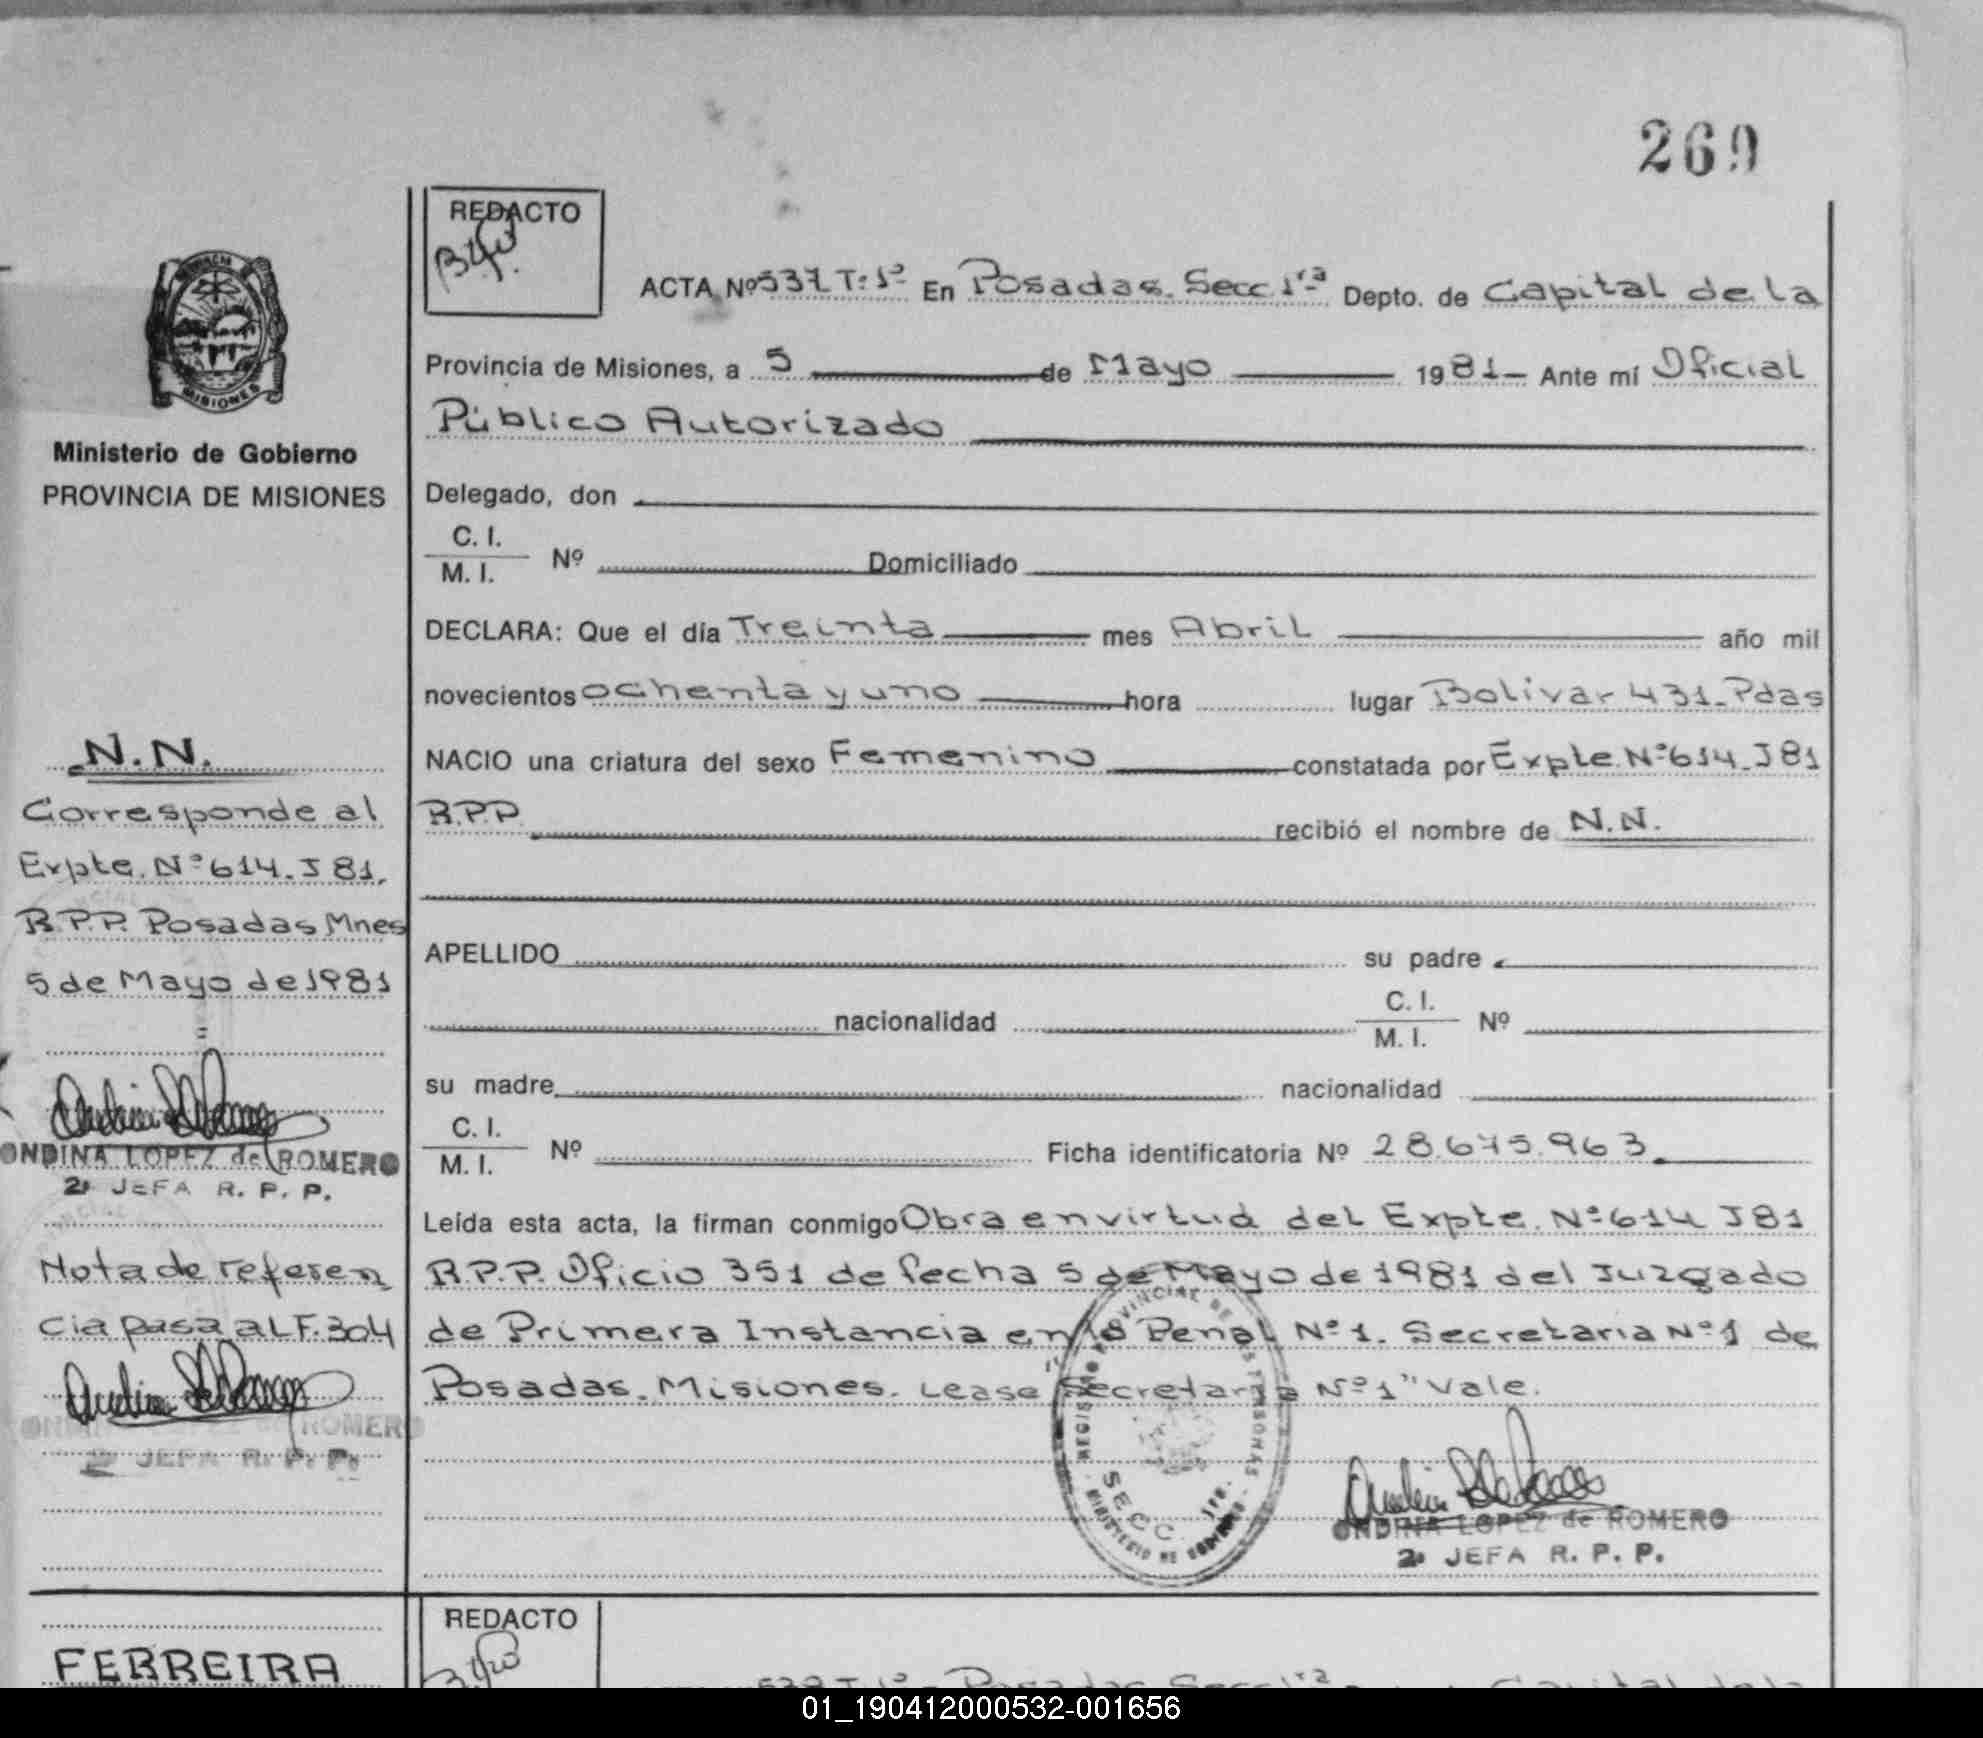 269
REDACTO
ACTA Nº 537 T: 1º En Posadas. Secc 1ra Depto. de Capital de la
Provincia de Misiones, a 5 de Mayo 1981 Ante mí Oficial
Público Autorizado
Delegado, don
C. I.
M. I. Nº Domiciliado
DECLARA: Que el día Treinta mes Abril año mil
novecientos ochenta y uno hora lugar Bolivar 431. Pdas
NACIO una criatura del sexo Femenino constatada por Expte. Nº 614. J 81
R.P.P. recibió el nombre de N.N.
APELLIDO su padre
nacionalidad C. I.
M. I. Nº
su madre nacionalidad
C. I.
M. I. Nº Ficha identificatoria Nº 28.675.963.
Leída esta acta, la firman conmigo Obra en virtud del Expte. Nº 614 J 81
R.P.P. Oficio 351 de fecha 5 de Mayo de 1981 del Juzgado
de Primera Instancia en lo Penal Nº 1. Secretaria Nº 1 de
Posadas. Misiones. Lease "Secretaria Nº 1" Vale.
ONDINA LOPEZ de ROMERO
2ª JEFA R. P. P.
MISIONES
Ministerio de Gobierno
PROVINCIA DE MISIONES
N.N.
Corresponde al
Expte. Nº 614. J 81.
R.P.P. Posadas Mnes
5 de Mayo de 1981
ONDINA LOPEZ de ROMERO
2ª JEFA R. P. P.
Nota de referen
cia pasa al F. 304
ONDINA LOPEZ de ROMERO
2ª JEFA R. P. P.
SECC. 1ra.
MINISTERIO DE GOBIERNO
FERREIRA
REDACTO
01_190412000532-001656